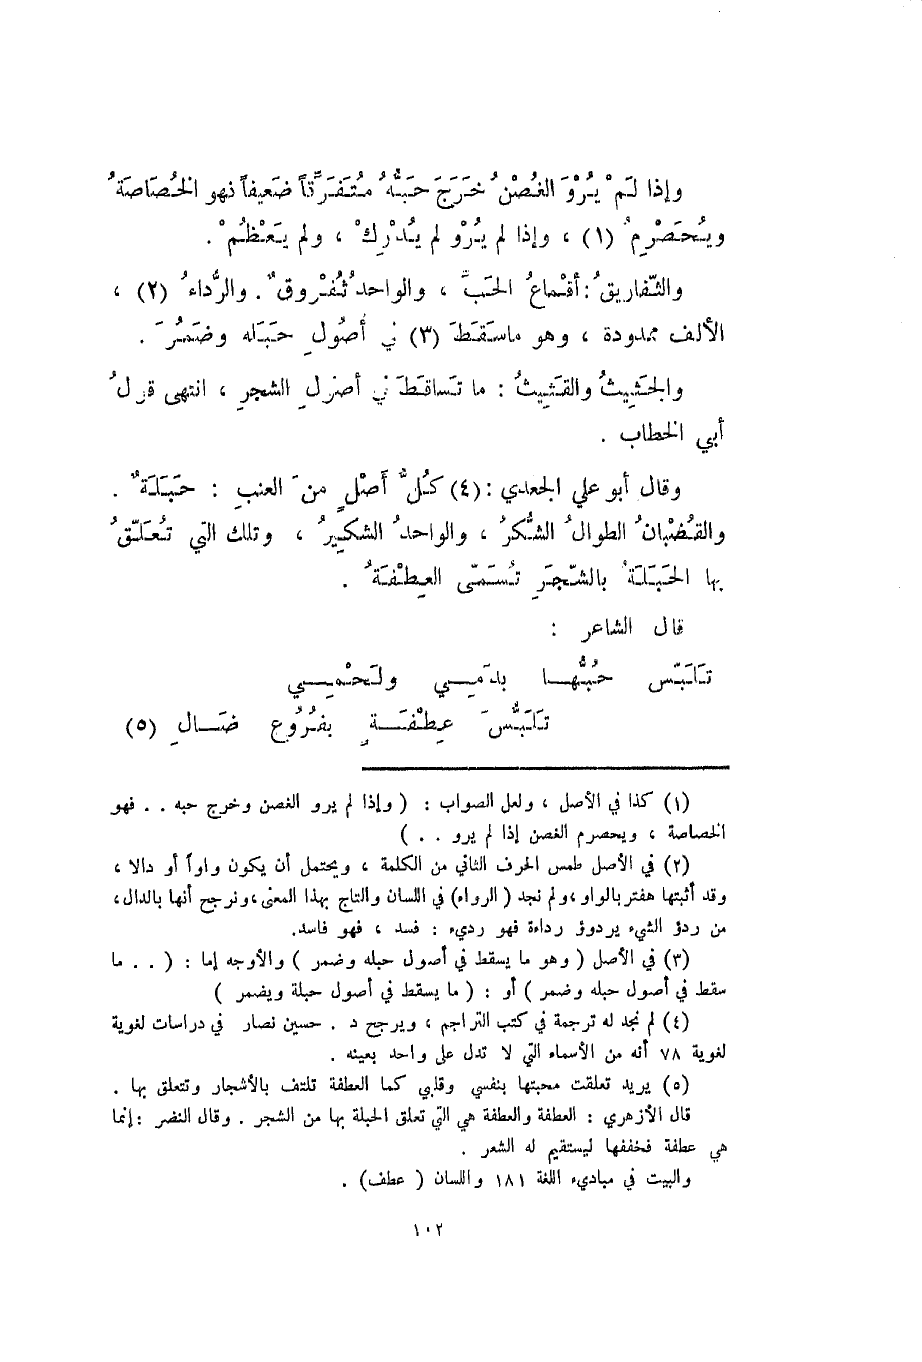 وإذا لَمْ يُرْوَ الغُصْنُ خَرَجَ حَبُّهُ مُتَفَرِّقاً ضَعيفاً فهو الخُصَاصَةُ
ويُحَصْرِمُ (١) ، وإذا لم يُرْو لم يُدْرِكْ ، ولم يَعْظُمْ .
والثَّفاريقُ : أقْماعُ الحَبِّ ، والواحدُ ثُفْروقٌ . والرُّداءُ (٢) ،
الألف ممدودة ، وهو ماسَقَطَ (٣) في أصُولِ حَبَله وضَمُرَ .
والجَثِيثُ والقَثِيثُ : ما تَساقَطَ في أصولِ الشجرِ ، انتهى قولُ
أبي الخطاب .
وقال أبو علي الجعدي : (٤) كُلُّ أَصْلٍ منَ العنبِ : حَبَلَةٌ .
والقُضْبانُ الطوالُ الشُّكُرُ ، والواحدُ الشكيرُ ، وتلك التي تُعَلَّقُ
بها الحَبَلَةُ بالشَّجَرِ تُسَمّى العِطْفَةُ .
قال الشاعر :
تَلَبَّس حُبُّهــا بدَمــي ولَحْمــي
تَلَبُّسَ عِطْفَــةٍ بفُرُوعِ ضَــالِ (٥)
(١) كذا في الأصل ، ولعل الصواب : ( وإذا لم يرو الغصن وخرج حبه . . فهو
الخصاصة ، ويحصرم الغصن إذا لم يرو . . )
(٢) في الأصل طمس الحرف الثاني من الكلمة ، ويحتمل أن يكون واواً أو دالا ،
وقد أثبتها هفنر بالواو ،ولم نجد ( الرواء) في اللسان والتاج بهذا المعنى ،ونرجح أنها بالدال،
من ردؤ الشيء يردؤ رداءة فهو رديء : فسد ، فهو فاسد.
(٣) في الأصل ( وهو ما يسقط في أصول حبله وضمر ) والأوجه إما : ( . . ما
سقط في أصول حبله وضمر ) أو : ( ما يسقط في أصول حبلة ويضمر )
(٤) لم نجد له ترجمة في كتب التراجم ، ويرجح د . حسين نصار في دراسات لغوية
لغوية ٧٨ أنه من الأسماء التي لا تدل على واحد بعينه .
(٥) يريد تعلقت محبتها بنفسي وقلبي كما العطفة تلتف بالأشجار وتتعلق بها .
قال الأزهري : العطفة والعطفة هي التي تعلق الحبلة بها من الشجر . وقال النضر :إنما
هي عطفة فخففها ليستقيم له الشعر .
والبيت في مباديء اللغة ١٨١ واللسان ( عطف) .
١٠٢